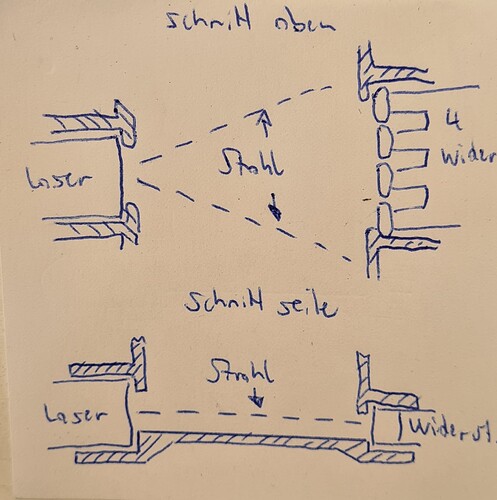 Schnitt oben
4
Laser
Strahl
Wider
Schnitt seite
Strahl
Laser
Widerst.